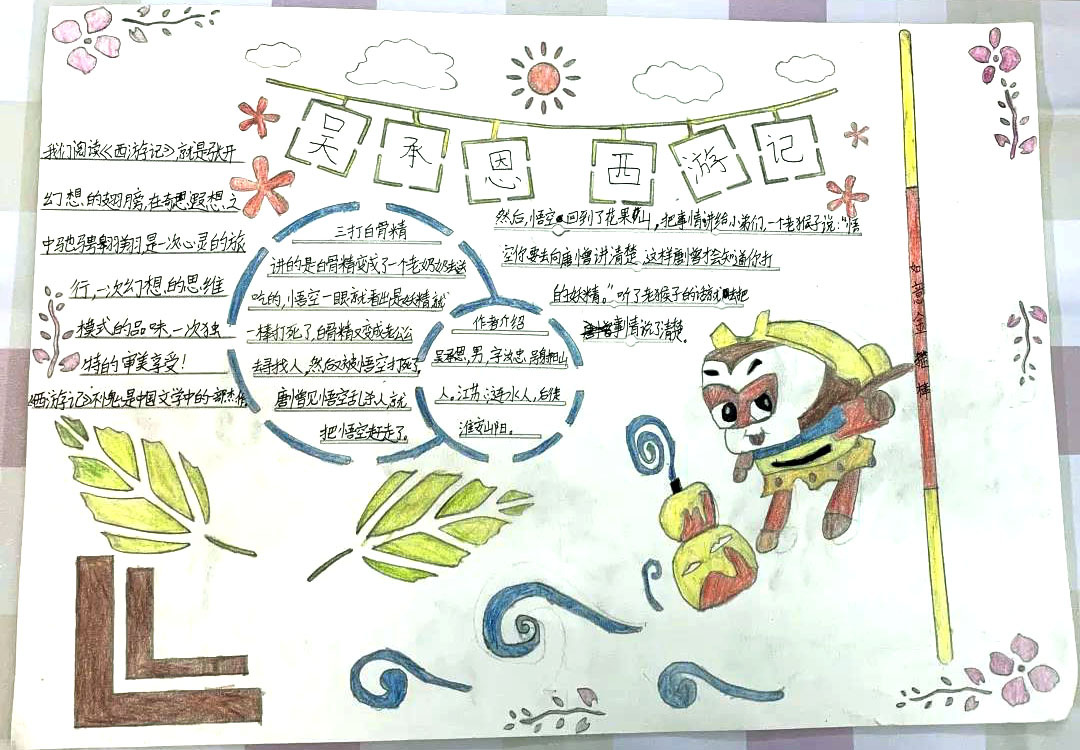 吴承恩 西游记
我们阅读《西游记》就是张开
幻想的翅膀,在奇思遐想之
中驰骋翱翔是一次心灵的旅
行,一次幻想的思维
模式的品味一次独
特的审美享受!
《西游记》不愧是中国文学中的一部杰作
三打白骨精
讲的是白骨精变成了一个老奶奶去送
吃的,悟空一眼就看出是妖精就
一棒打死了,白骨精又变成老公公
去寻找人,然后又被悟空打死了
唐僧见悟空乱杀人就
把悟空赶走了。
作者介绍
吴承恩,男,字汝忠,号射阳山
人。江苏涟水人,后徙
淮安山阳。
然后,悟空回到了花果山,把事情讲给小猴们,一个老猴子说:“悟
空你要去向唐僧讲清楚,这样唐僧才会知道你打
的妖精。”听了老猴子的话就去把
事情说了清楚。
如意金箍棒